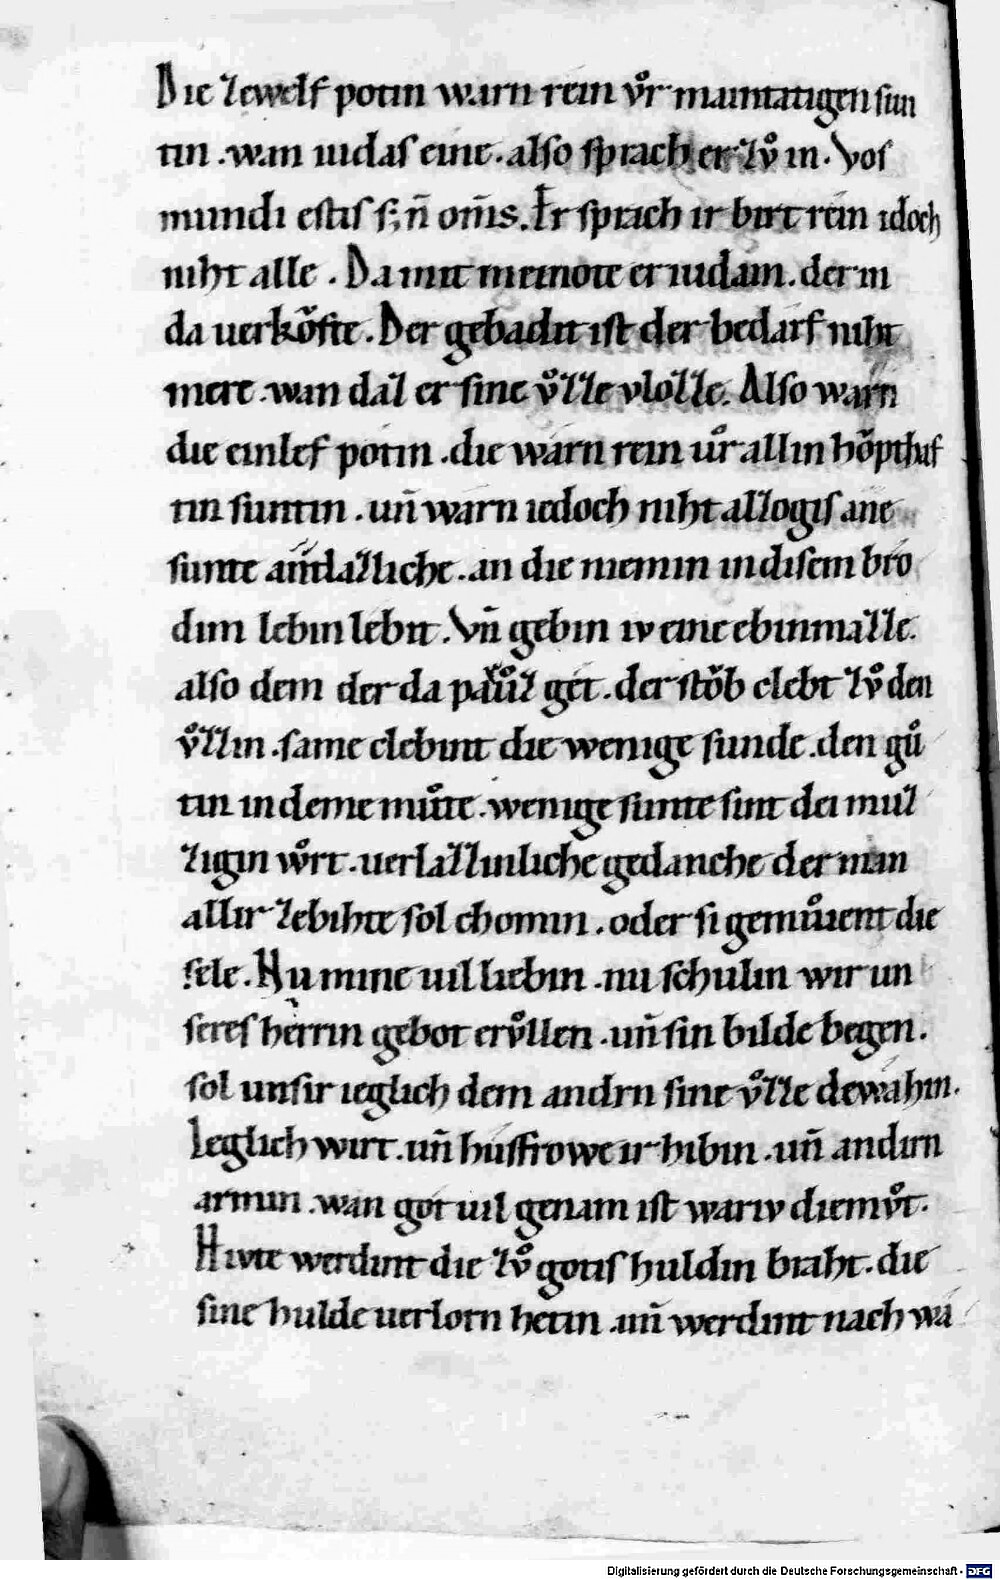 Die zewelf potin warn rein vͦr maintatigen sun
tin . wan iudas eine . also sprach er zvͦ in . Vos
mundi estis s; n̄ om̄s . Er sprach ir birt rein idoch
niht alle . Da mit meinote er iudam . der in
da uerkoͮfte . Der gebadit ist der bedarf niht
mere . wan daz er sine vͦzze vlozze . Also warn
die einlef potin . die warn rein uͦr allin hoͮpthaf
tin suntin . un̄ warn iedoch niht allogis ane
sunte antlazliche . an die niemin in disem bro
dim lebin lebit . Vn̄ gebin iv eine ebinmazze .
also dem der da paruͦz get . der stoͮb clebt zvͦ den
vͦzzin . same clebint die wenige sunde . den guͦ
tin in deme muͦte . wenige sunte sint dei muz
zigin woͤrt . uerlazzinliche gedanche der man
allir zebihte sol chomin . oder si gemuͦient die
sele . Nu mine uil liebin . nu schulin wir un
seres herrin gebot ervͦllen . un̄ sin bilde begen .
sol unsir ieglich dem andrn sine vͦzze dewahin .
Ieglich wirt . un̄ husfrowe ir hibin . un̄ andirn
armin . wan got uil genam ist wariv diemvͦt .
Hivte werdint die zvͦ gotis huldin braht . die
sine hulde uerlorn hetin . un̄ werdint nach wa
Digitalisierung gefördert durch die Deutsche Forschungsgemeinschaft - DFG